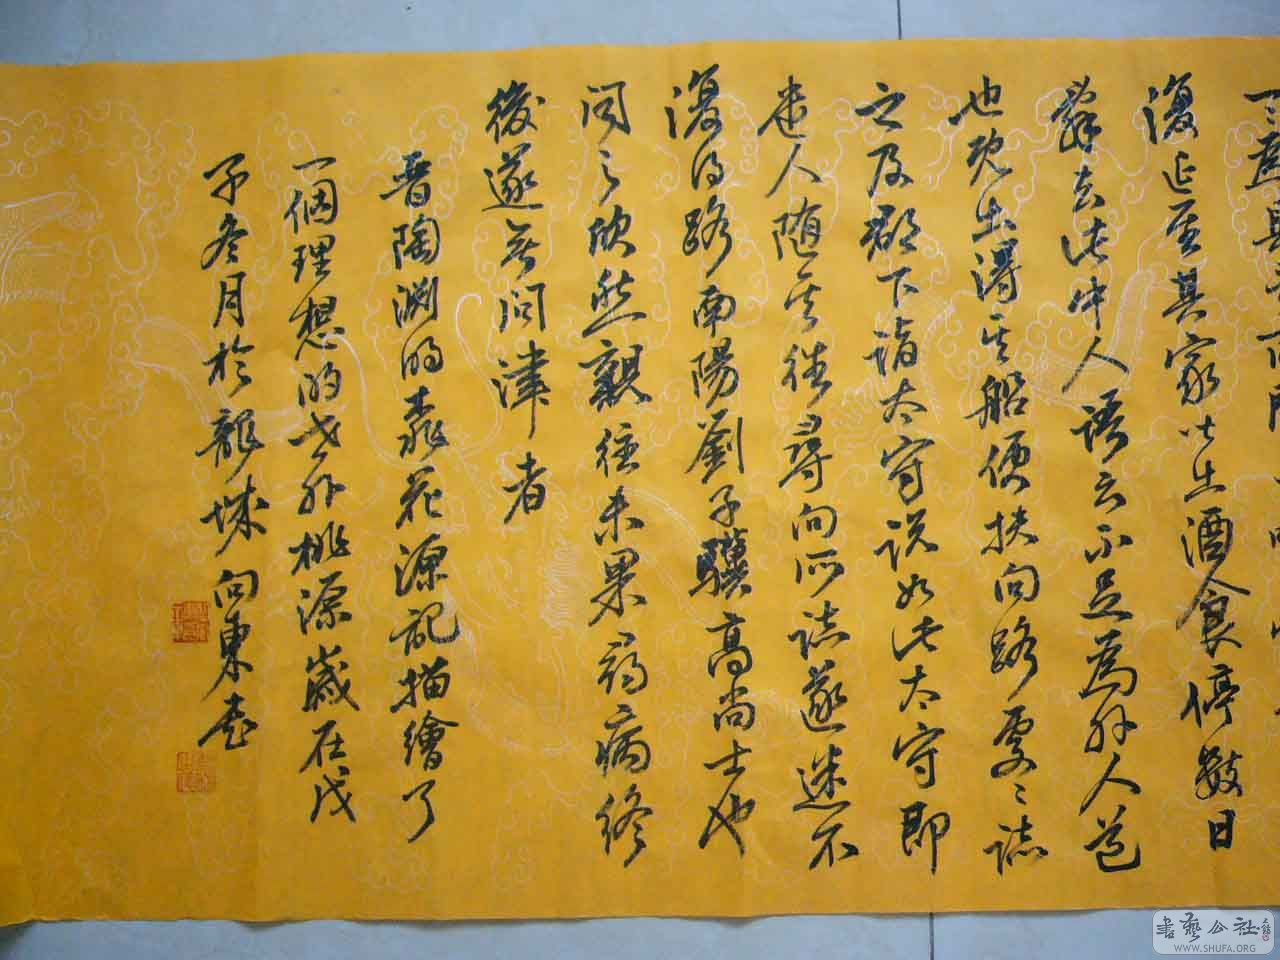 一〻為具言所聞
復延至其家皆出酒食停數日
辭去此中人語云不足為外人道
也既出得其船便扶向路處〻誌
之及郡下詣太守説如此太守即
遣人随其往尋向所誌遂迷不
復得路南陽劉子驥高尚士也
聞之欣然親往未果尋病終
後遂無問津者
晋陶淵明桃花源記描繪了
一個理想的世外桃源歲在戊
子冬月於龍城向東書
書藝公社
WWW.SHUFA.ORG